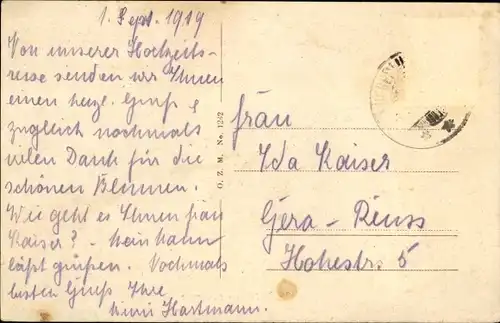 1. Sept. 1919
Von unserer Hochzeits-
reise senden wir Ihnen
einen herzl. Gruß &
zugleich nochmals
vielen Dank für die
schönen Blumen.
Wie geht es Ihnen frau
Kaiser? - Mein Mann
läßt grüßen. Nochmals
besten Gruß Ihre
Hartmann.
O. Z. M. No. 1242
frau
Ida Kaiser
Gera-Reuss
Hohestr. 5